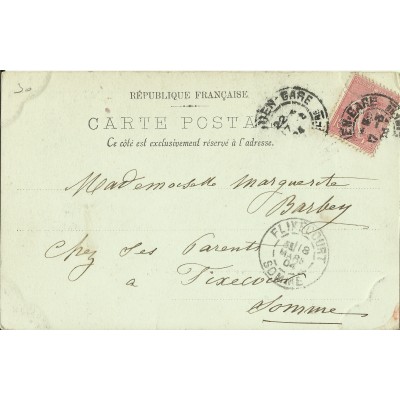 30
RÉPUBLIQUE FRANÇAISE
CARTE POSTA
Ce côté est exclusivement réservé à l'adresse.
Mademoiselle Marguerite
Barbey
Chez Ses Parents
a Fixecourt
Somme
FLIXECOURT
18
MARS
04
SOMME